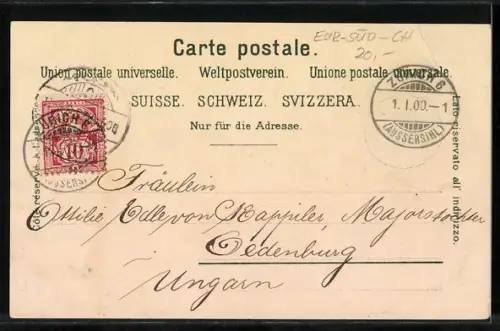 EUR-SÜD-CH
20,-
Carte postale.
Union postale universelle. Weltpostverein. Unione postale universale.
SUISSE. SCHWEIZ. SVIZZERA.
Nur für die Adresse.
ZÜRICH 6
1.I.00.-1
(AUSSERSIHL)
10
Côté réservé à l'adresse.
Lato riservato all' indirizzo.
Fräulein
Edle von Kappiler, Majorstochter
Oedenburg
Ungarn